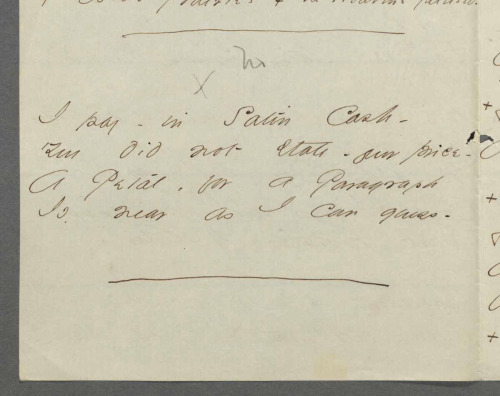 I pay - in Satin Cash -
You did not state - your price -
A Petal, for a Paragraph
Is near as I can guess -